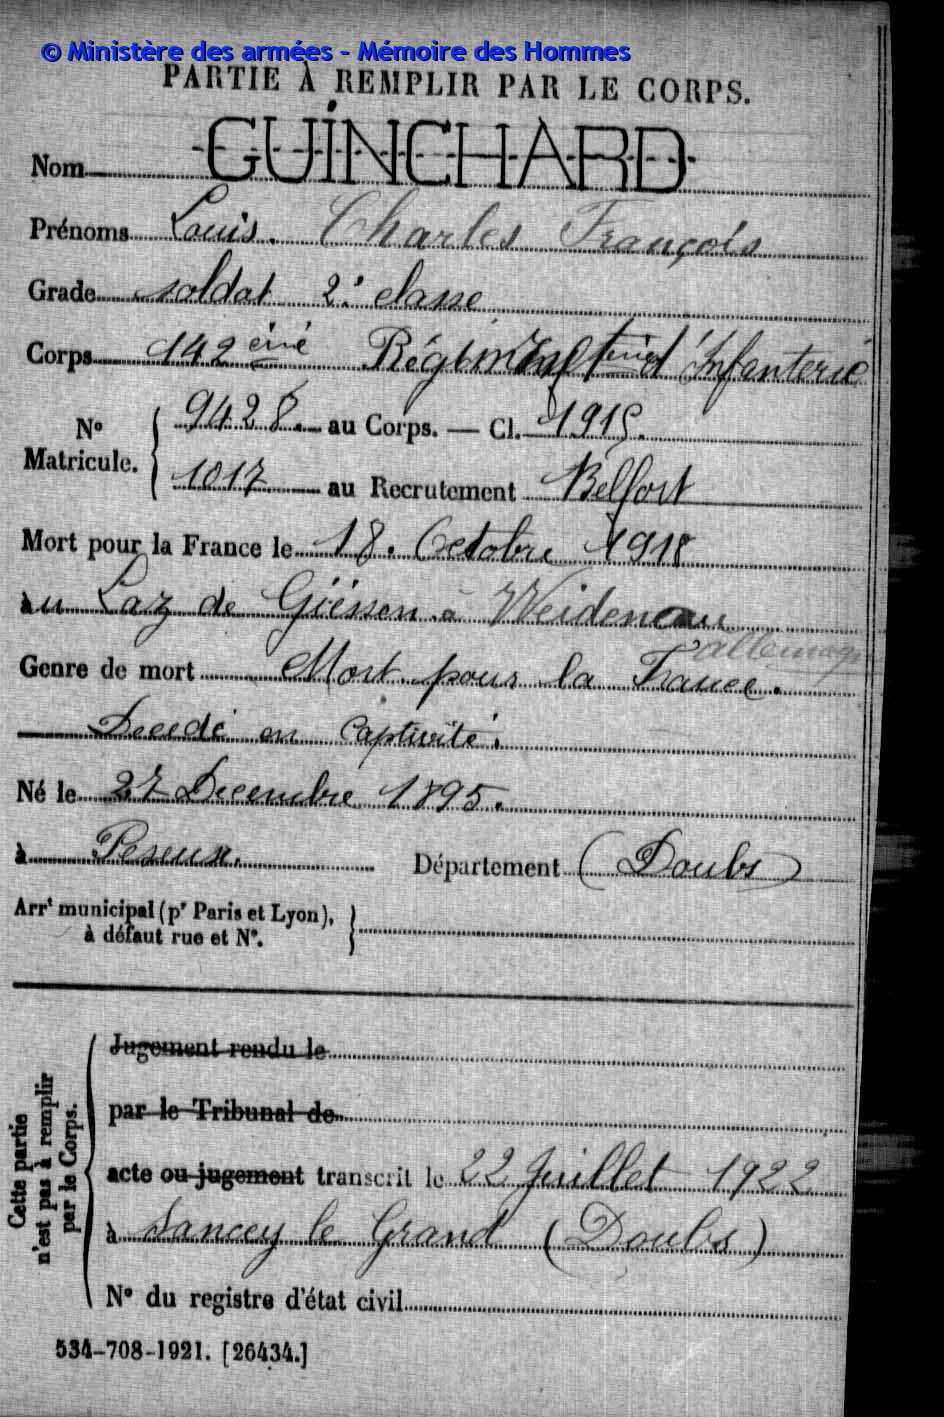 © Ministère des armées - Mémoire des Hommes
PARTIE À REMPLIR PAR LE CORPS.
Nom GUINCHARD
Prénoms Louis. Charles François
Grade soldat 2e classe
Corps 142ème Régiment d'Infanterie
No Matricule. 9428. au Corps. — Cl. 1915.
1017 au Recrutement Belfort
Mort pour la France le 18. Octobre 1918
au Laz de Giessen à Weidenau
allemagne
Genre de mort Mort pour la France.
Décédé en captivité.
Né le 27 Decembre 1895.
à Peseux. Département (Doubs)
Arrt municipal (pr Paris et Lyon),
à défaut rue et No.
Cette partie n'est pas à remplir par le Corps.
Jugement rendu le
par le Tribunal de
acte ou jugement transcrit le 22 Juillet 1922
à Sancey le Grand (Doubs)
No du registre d'état civil
534-708-1921. [26434.]